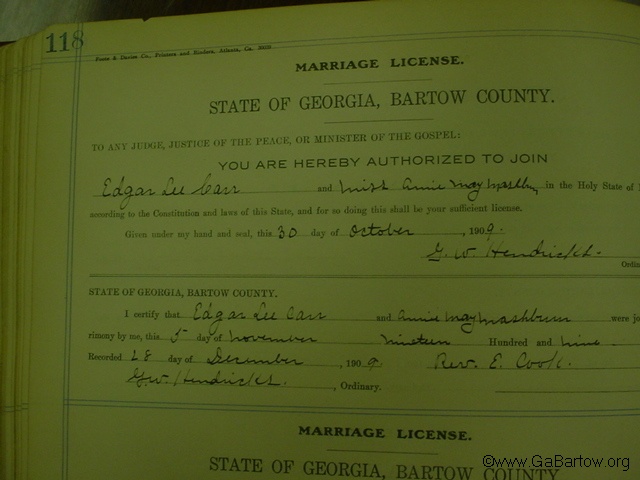 118
Foote & Davies Co., Printers and Binders, Atlanta, Ga.
MARRIAGE LICENSE.
STATE OF GEORGIA, BARTOW COUNTY.
TO ANY JUDGE, JUSTICE OF THE PEACE, OR MINISTER OF THE GOSPEL:
YOU ARE HEREBY AUTHORIZED TO JOIN
Edgar Lee Carr and Miss Annie May Washburn in the Holy State of
according to the Constitution and laws of this State, and for so doing this shall be your sufficient license.
Given under my hand and seal, this 30 day of October, 1909.
G. W. Hendricks.
Ordin
STATE OF GEORGIA, BARTOW COUNTY.
I certify that Edgar Lee Carr and Annie May Washburn were jo
rimony by me, this 5 day of November Nineteen Hundred and nine.
Recorded 28 day of December, 1909. Rev. E. Cook.
G. W. Hendricks., Ordinary.
MARRIAGE LICENSE.
STATE OF GEORGIA, BARTOW COUNTY
©www.GaBartow.org